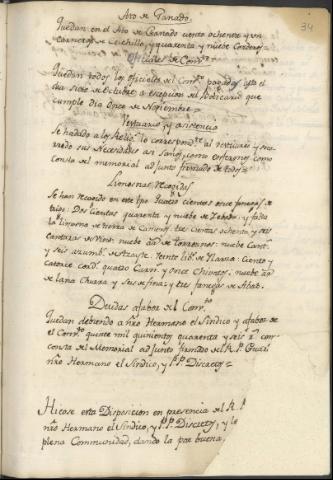 34
Ato de Ganado
Quedan en el Ato de Ganado ciento ochenta y un
Carneros de Cuchillo, y quarenta y nueve Corderos
Oficiales de Conv.to
Quedan todos los oficiales del Conv.to pagados hasta el
dia siete de Octubre a excepcion del que
cumple dia once de Noviembre
Vestuario, y asistencia
Se ha dado a los Relig.s lo correspond.te al vestuario y socorrido
sus Necesidades a Sanos, como Enfermos como
consta del memorial adjunto firmado de todos
Limosnas recogidas
Se han recogido en este tpo. quatro cientas once fanegas de
trigo: Doscientas quarenta y nueve de Zebada: y falta
la limosna de tierra de Campos: tres cientas ochenta y seis
cantaras de Vino: nueve ar.s de torreznos: nueve Cant.s
y seis azumb.s de Azeyte: Veinte lib.s de : Ciento y
catorce cord.s quatro Carn.s y once Chivatos: nueve ar.s
de lana Churra y seis de fina; y tres fanegas de Abas.
Deudas a fabor del Conv.to
Quedan debiendo a nro Hermano el Sindico y a fabor de
el Conv.to quince mil quinientos quarenta y seis r.s como
consta del Memorial adjunto firmado del R. P. Guar.n
nro Hermano el Sindico, y PP. Discretos
Hizose esta Disposicion en presencia del R. P.
nro Hermano el Sindico, y PP. Discretos, y la
plena Communidad, dando la por buena